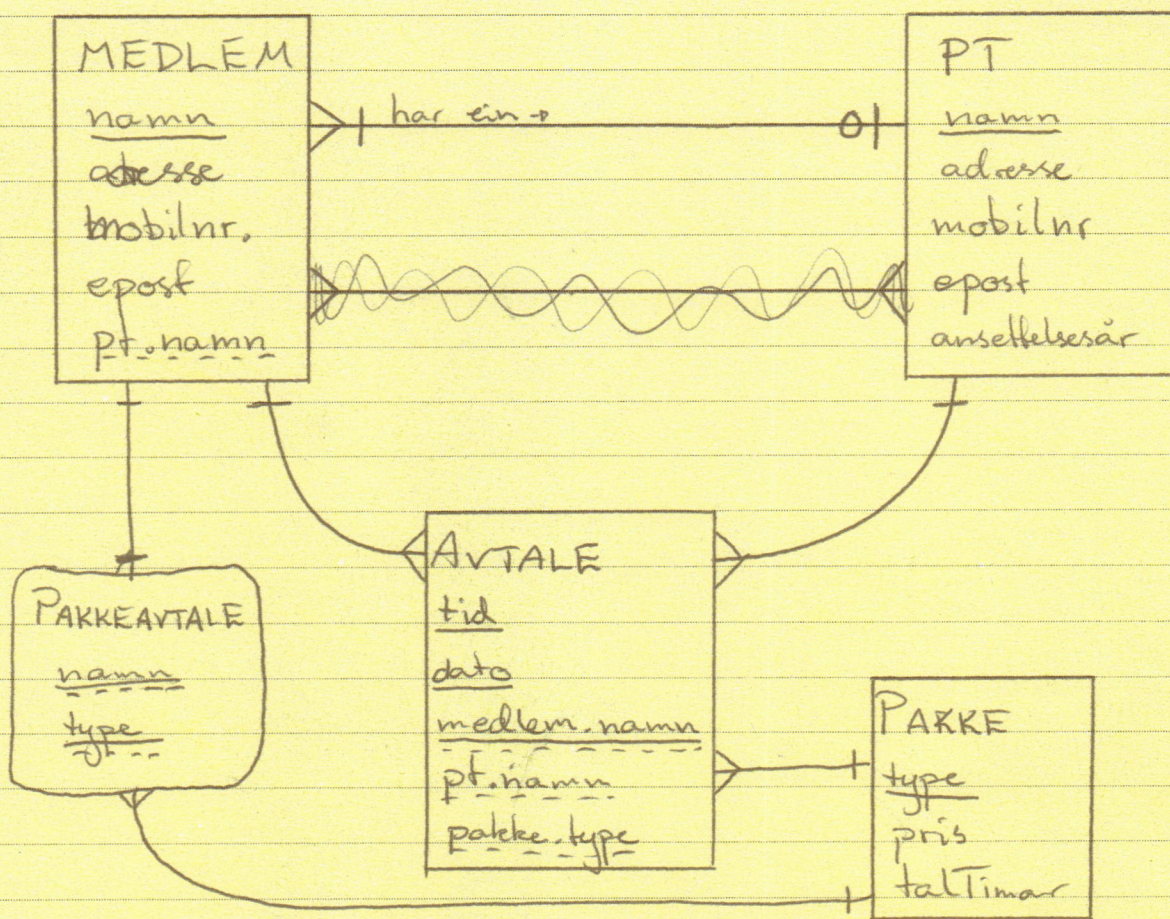 MEDLEM
namn
adresse
mobilnr.
epost
pt.namn
har ein →
PT
namn
adresse
mobilnr
epost
ansettelsesår
PAKKEAVTALE
namn
type
AVTALE
tid
dato
medlem.namn
pt.namn
pakke.type
PAKKE
type
pris
talTimar